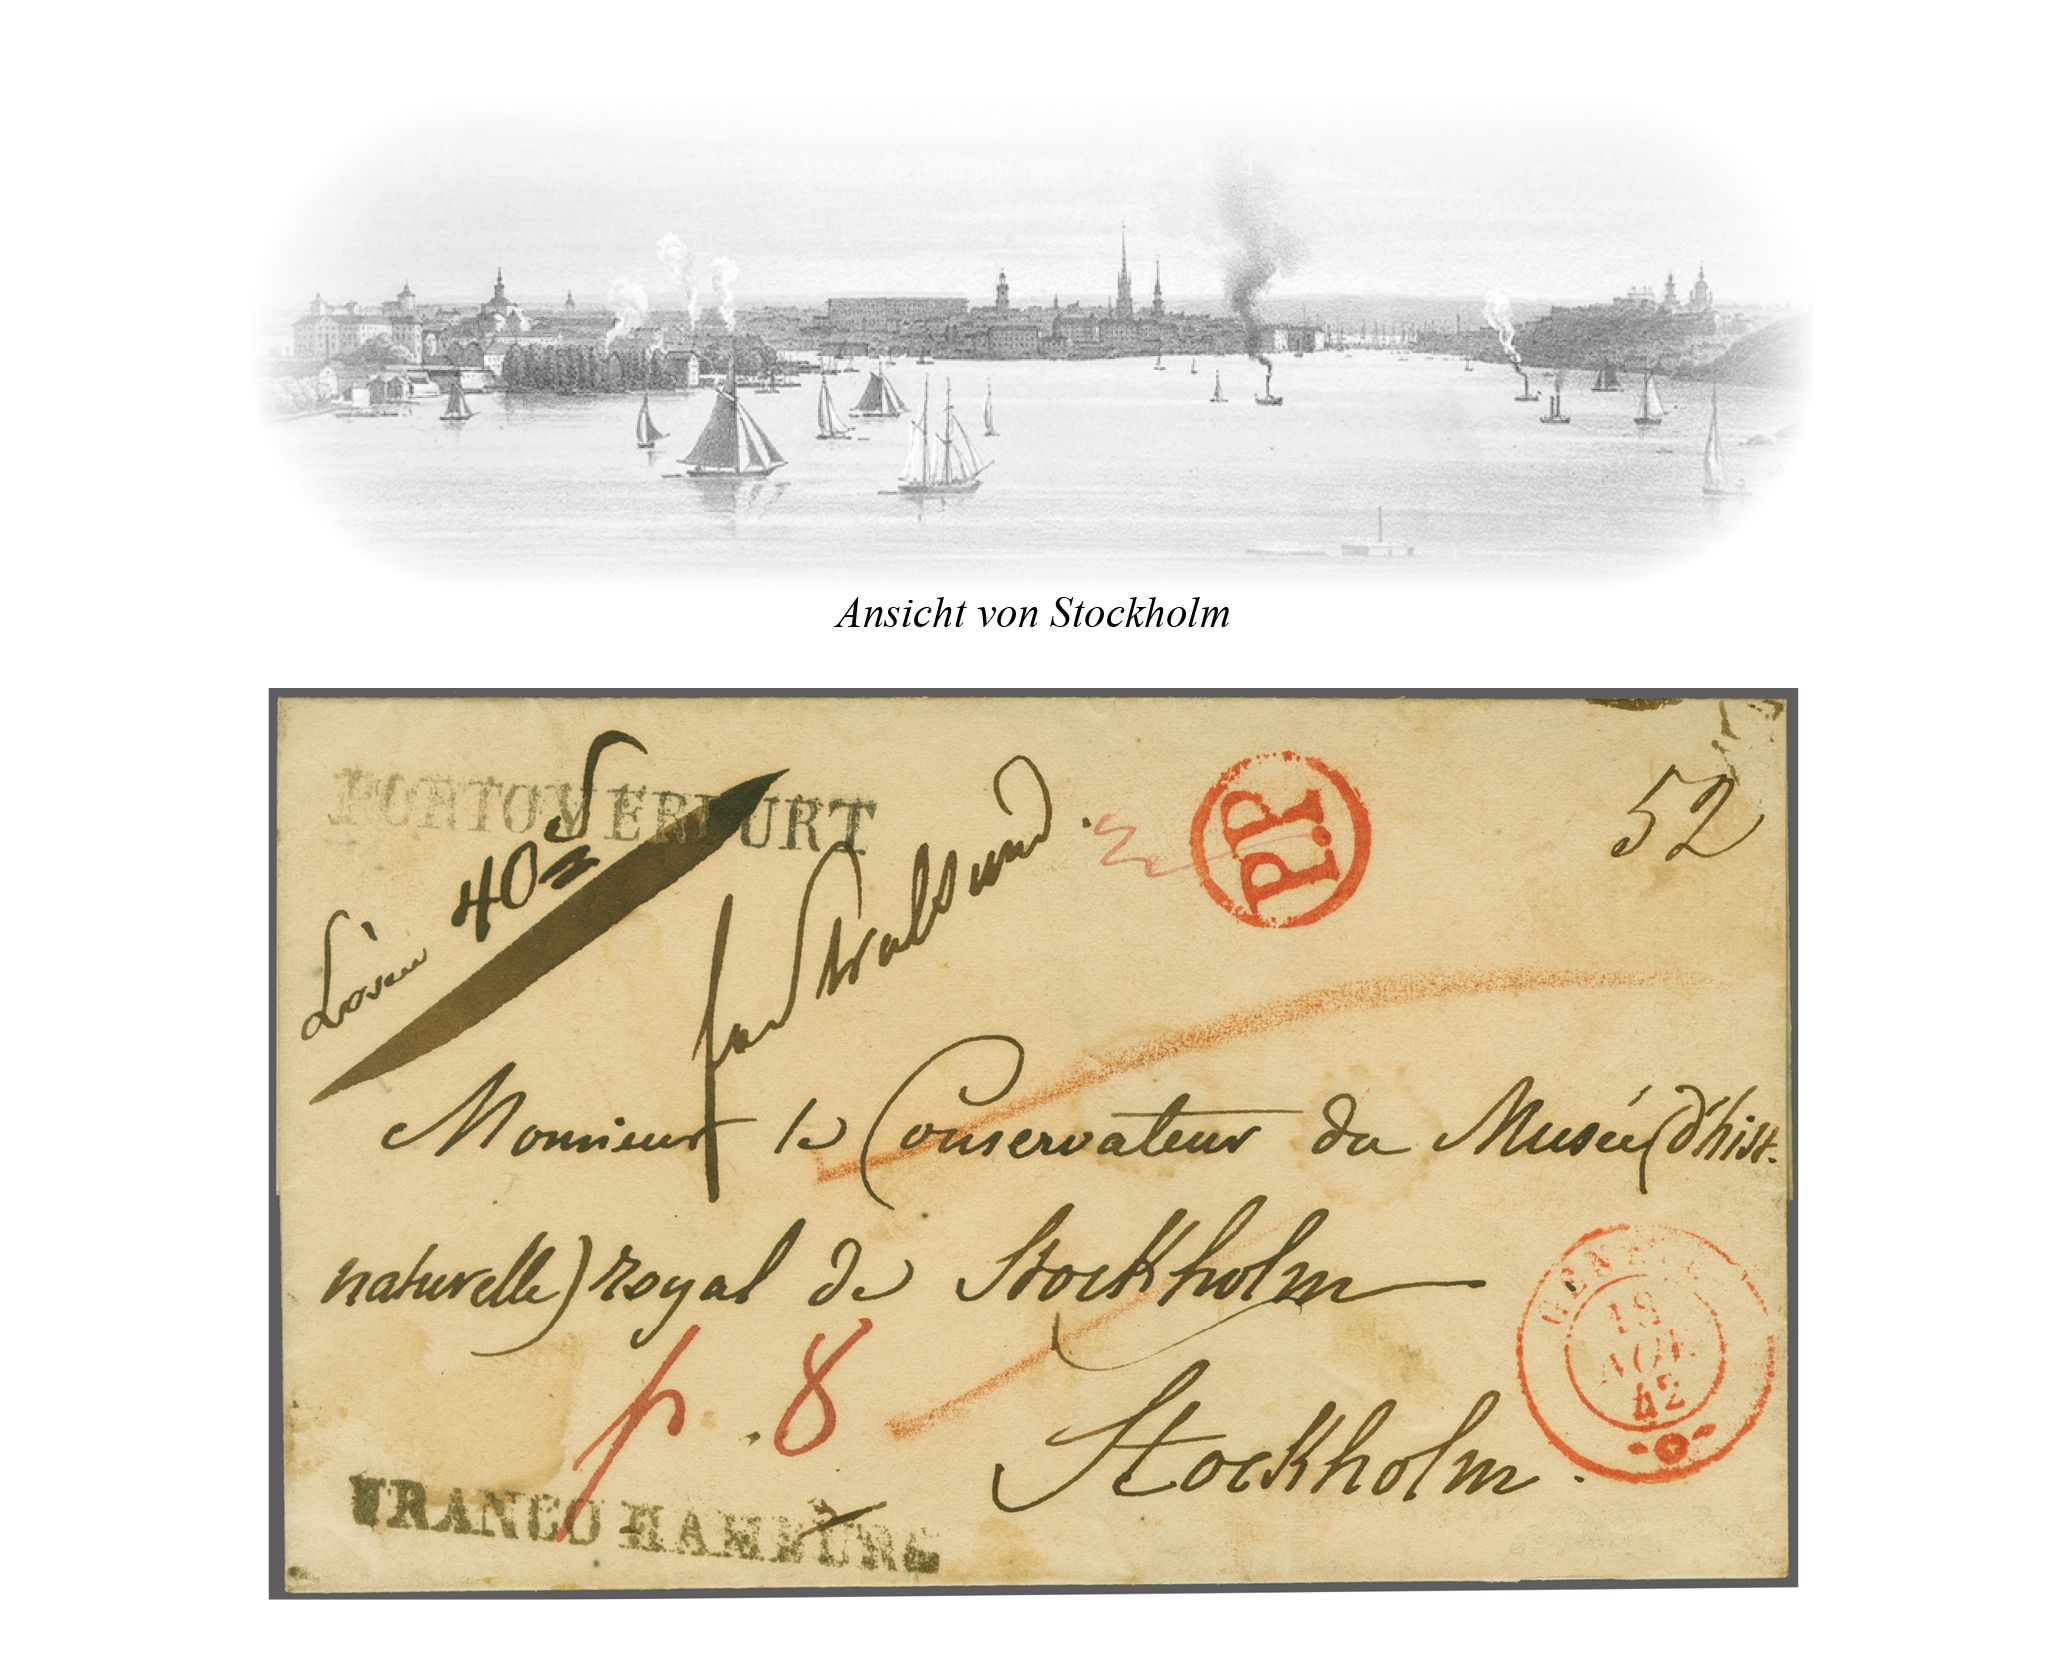 Ansicht von Stockholm
PORTO V ERFURT
40
fco Stralsund
P.P.
52
Monsieur le Conservateur du Musée (d'hist.
naturelle) royal de Stockholm
p. 8
Stockholm.
FRANCO HAMBURG
AOU
42